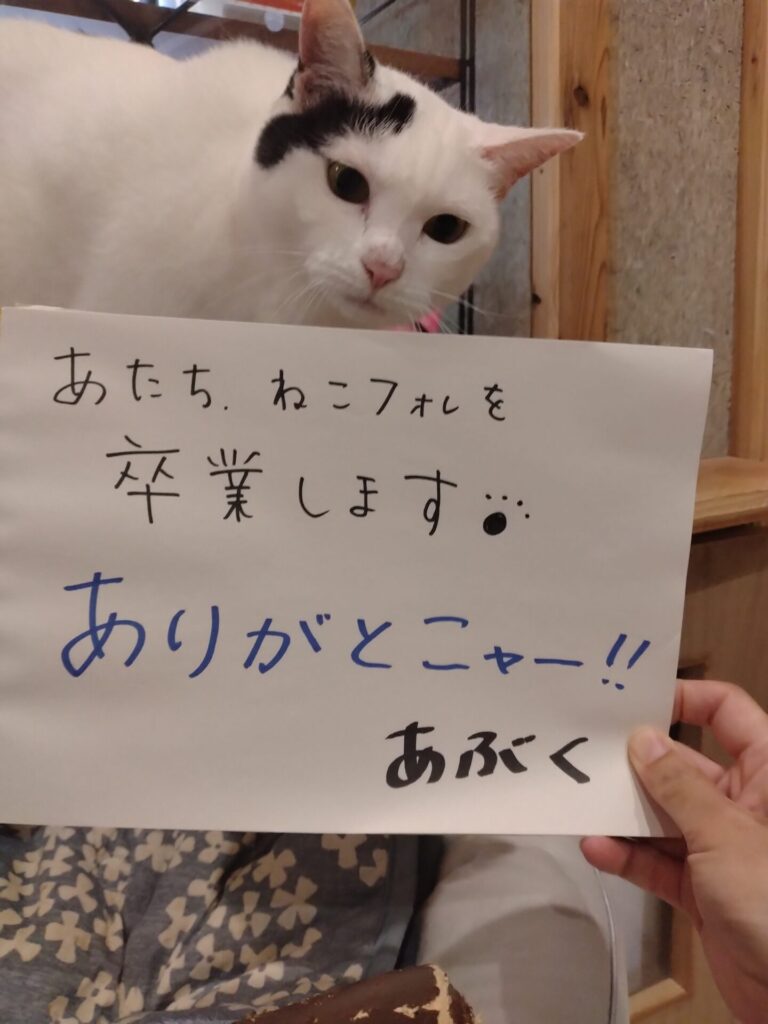 あたち、ねこフォレを
卒業します
ありがとニャー!!
あぶく